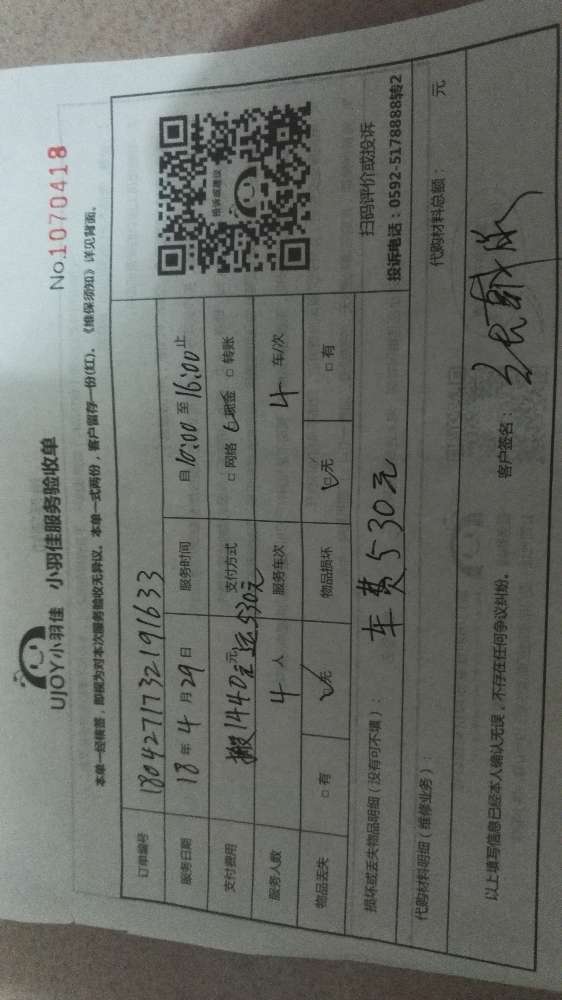 UJOY小羽佳 小羽佳服务验收单
No.1070418
本单一经核签，即视为对本次服务验收无异议。本单一式两份，客户留存一份(红)。《维保须知》详见背面。
订单编号 1804271732191633
服务日期 18年4月29日 服务时间 自10:00至16:00止
支付费用 搬1440元 运530元 元 支付方式 □网络 ☑现金 □转账
服务人数 4 人 服务车次 4 车/次
物品丢失 □有 ☑无 物品损坏 ☑无 □有
投诉或建议
扫码评价或投诉
投诉电话：0592-5178888转2
损坏或丢失物品明细（没有可不填）： 车费530元
代购材料明细（维修业务）： 代购材料总额： 元
以上填写信息已经本人确认无误，不存在任何争议纠纷。 客户签名：